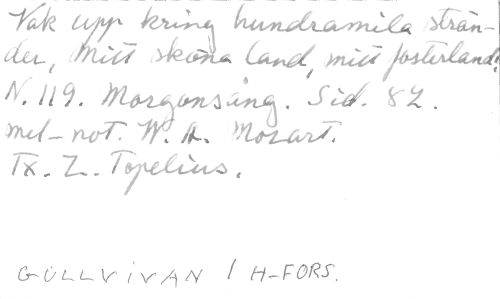 Vak upp kring hundramila strän-
der, Mitt sköna land, mitt fosterland!
N. 119. Morgonsång. Sid. 82.
mel-not. W. A. Mozart.
Tx. Z. Topelius.
GULLVIVAN / H-FORS.